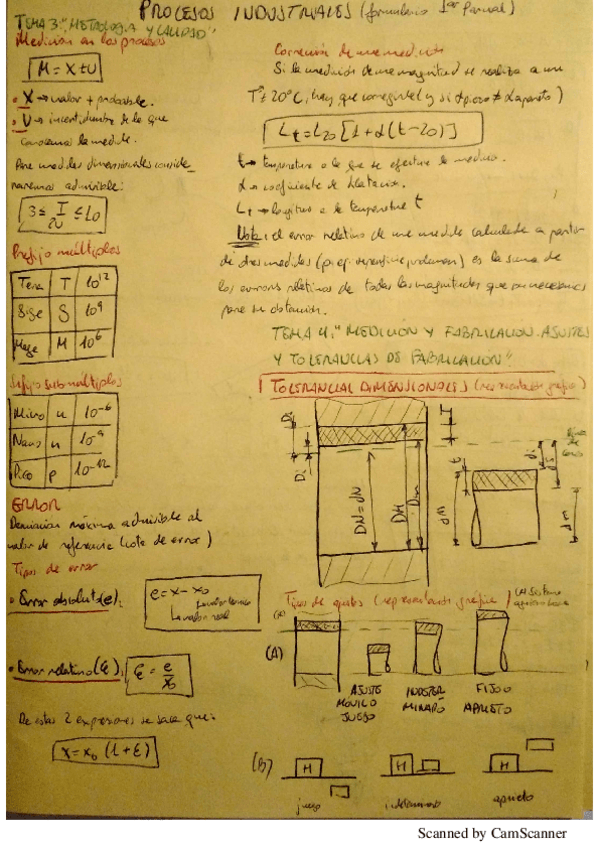 PROCESOS INDUSTRIALES (formulario 1er Parcial)
TEMA 3: "METROLOGIA Y CALIDAD"
Medicion en los procesos
M = X ± U
• X → valor + probable.
• U → incertidumbre de lo que
conocemos la medida.
Para medidas dimensionales conside_
naremos admisible:
3 ≤ I/2U ≤ 10
Prefijo múltiplos
Tera T 10^12
Giga G 10^9
Mega M 10^6
Sufijo submúltiplos
Micro u 10^-6
Nano n 10^-9
Pico p 10^-12
ERROR
Desviacion máxima admisible al
valor de referencia (cota de error)
Tipos de error
• Error absoluto(e):
e = x - x0
↳ valor teorico
↳ valor real
• Error relativo(ε):
ε = e/x0
De estas 2 expresiones se saca que:
x = x0 (1 + ε)
Correccion de una medicion
Si la medicion de una magnitud se realiza a una
Tª ≠ 20ºC, hay que corregirla (y si α pieza ≠ α aparato)
Lt = L20 [1 + α(t-20)]
t → temperatura a la que se efectua la medida.
α → coeficiente de dilatacion.
Lt → longitud a la temperatura t
Nota: el error relativo de una medida calculada a partir
de otras medidas (p.ej: superficie, volumen) es la suma de
los errores relativos de todas las magnitudes que son necesarias
para su obtención.
TEMA 4: "MEDICION Y FABRICACION. AJUSTES
Y TOLERANCIAS DE FABRICACION".
TOLERANCIAS DIMENSIONALES (representación gráfica)
Ds
Di
T
DN=dN
DM
Dm
t
dM
dm
di
ds
Tipos de ajustes (representación gráfica)
(A)
AJUSTE
MOVIL O
JUEGO
INDETER-
MINADO
FIJO O
APRIETO
(B)
H
H
H
juego
indeterminado
aprieto
Scanned by CamScanner